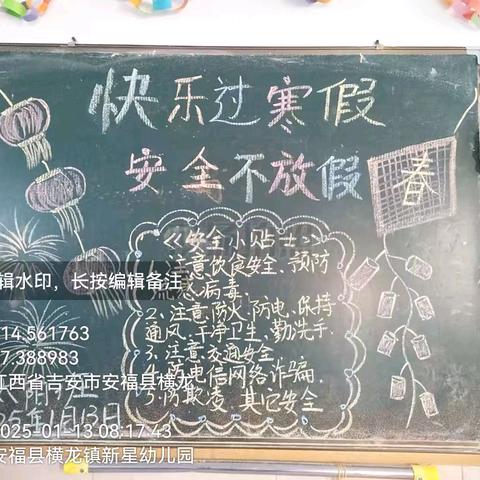 快乐过寒假
安全不放假
春
《安全小贴士》
1、注意饮食安全、预防
病毒.
2、注意防火,防电、保持
通风、干净卫生、勤洗手.
3、注意交通安全
4、防电信网络诈骗.
5、防欺凌 其它安全
辑水印，长按编辑备注
14.561763
7.388983
江西省吉安市安福县横龙
5年1月13日
2025-01-13 08:17:43
安福县横龙镇新星幼儿园